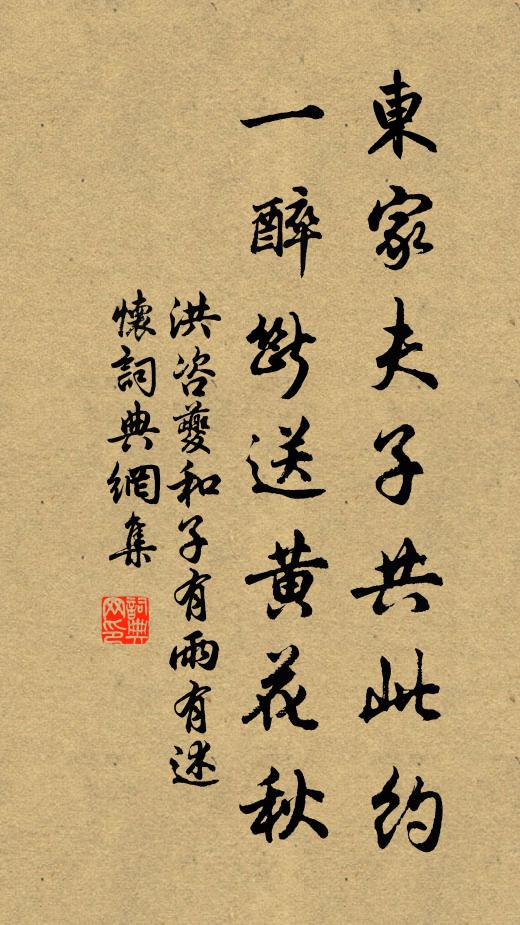 東家夫子共此約
一醉斷送黃花秋
洪咨夔和子有雨有述
懷詞典網集
詞典網印